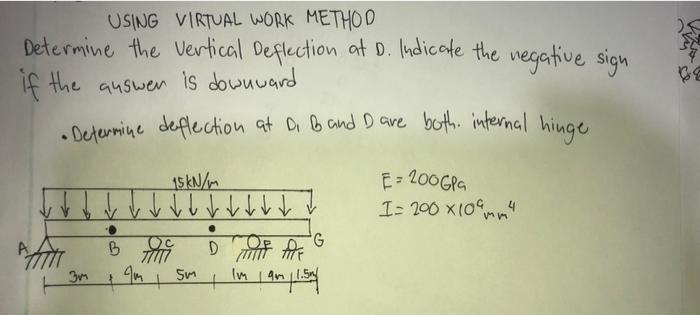 USING VIRTUAL WORK METHOD
Determine the Vertical Deflection at D. Indicate the negative sign
if the answer is downward
• Determine deflection at D, B and D are both. internal hinge
15kN/m
E = 200GPa
I = 200 x10⁹mm⁴
A B C D E F G
3m 4m 5m 1m 4m 1.5m